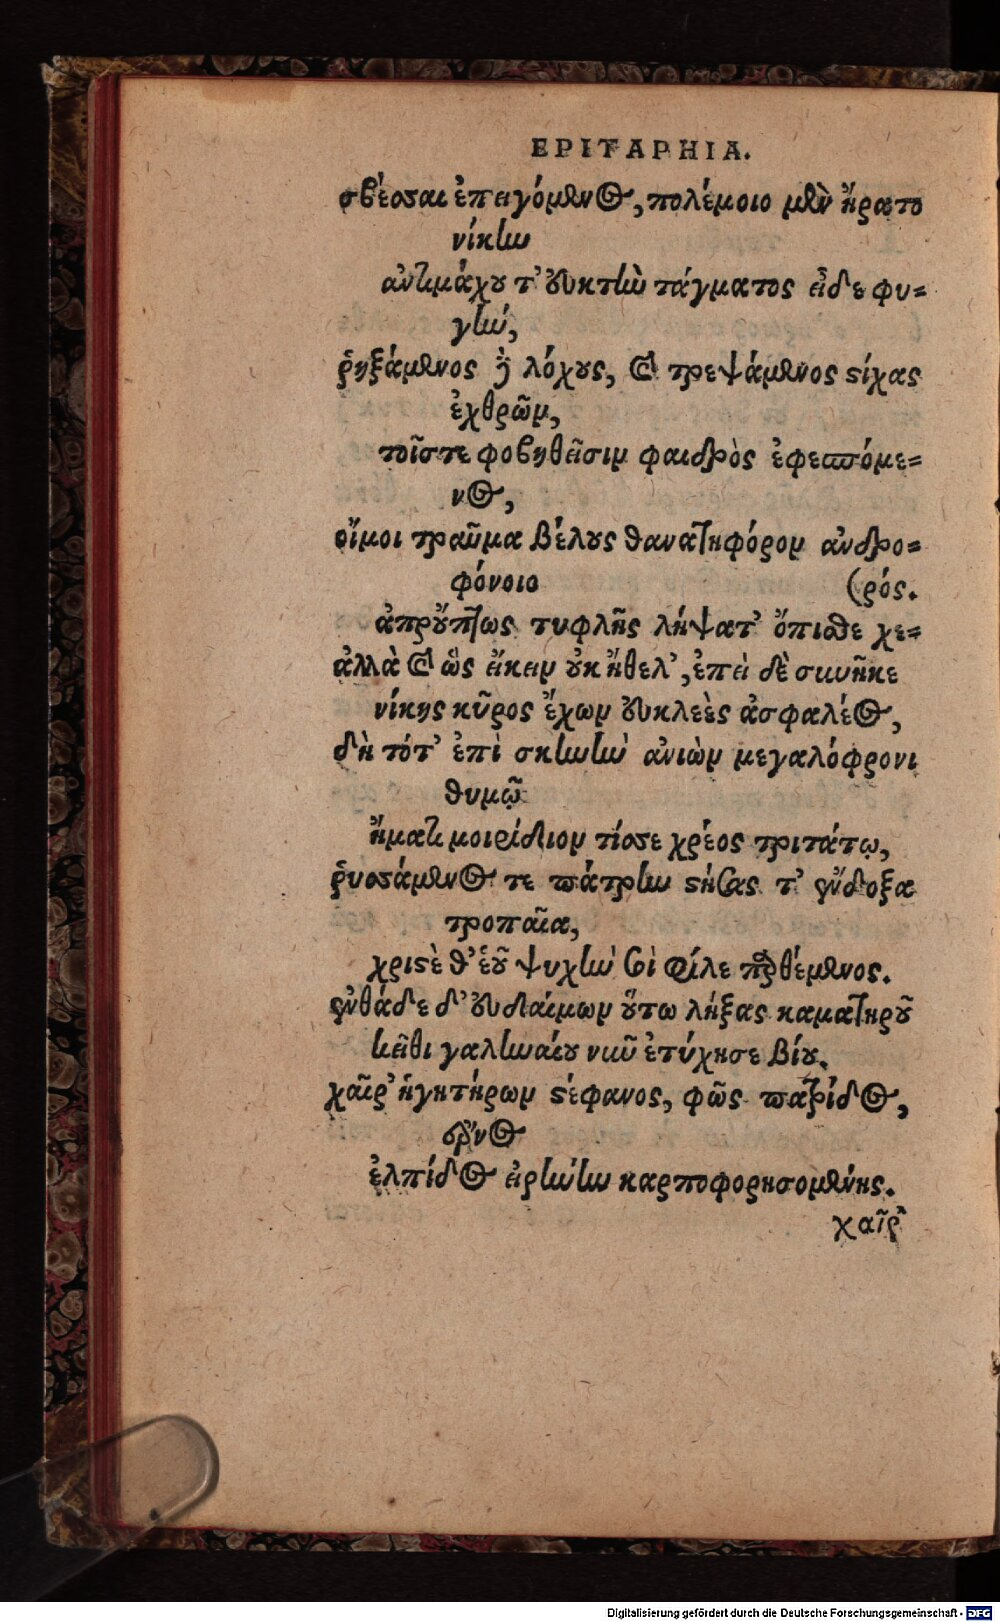 EPITAPHIA.
σβέσαι ἐπειγόμενος, πολέμοιο μὲν ἤρατο
νίκην
ἀντιμάχου τ' εὐκτὴν τάγματος εἶδε φυ=
γήν,
ῥηξάμενος καὶ λόχους, καὶ τρεψάμενος στίχας
ἐχθρῶν,
τοῖς τε φοβηθεῖσιν φαιδρὸς ἐφεσπόμε=
νος,
οἴμοι τραῦμα βέλους θανατηφόρον ἀνδρο=
φόνοιο (ρός.
ἀπρούπτως τυφλῆς λήψατ' ὄπισθε χε=
ἀλλὰ καὶ ὣς εἴκειν οὐκ ἤθελ', ἐπεὶ δὲ συνῆκε
νίκης κῦρος ἔχων εὐκλεὲς ἀσφαλέος,
δὴ τότ' ἐπὶ σκηνὴν ἀνιὼν μεγαλόφρονι
θυμῷ
ἤματι μοιρίδιον τίσε χρέος τριτάτῳ,
ῥυσάμενος τε πάτρην στήσας τ' ἔνδοξα
τροπαῖα,
χριστὲ θ' ἑοῦ ψυχὴν σοὶ φίλε παρθέμενος.
ἐνθάδε δ' εὐδαίμων οὕτω λήξας καματηροῦ
κεῖθι γαληναίου νῦν ἐτύχησε βίου.
χαῖρ' ἡγητήρων στέφανος, φῶς πατρίδος,
ἔρνος
ἐλπίδος εἰρήνην καρποφορησομένης.
χαῖρ'
Digitalisierung gefördert durch die Deutsche Forschungsgemeinschaft - DFG